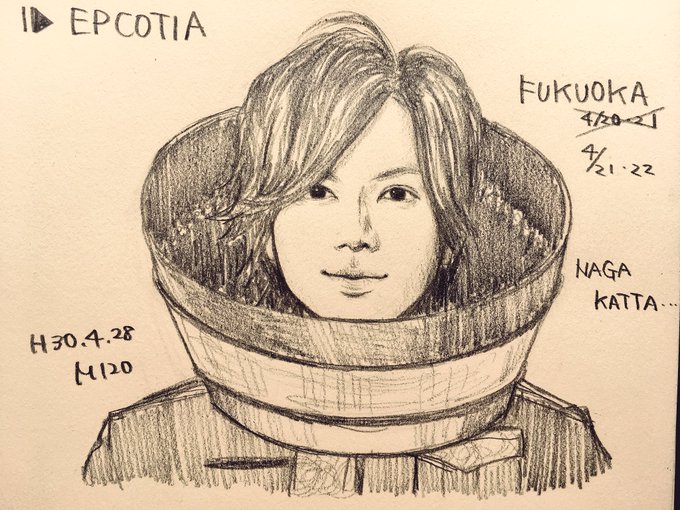 EPCOTIA
FUKUOKA
4/20-21
4/21.22
NAGA
KATTA...
H30.4.28
M120